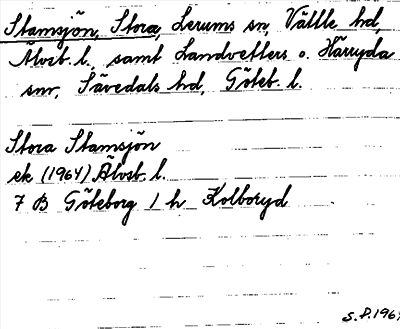 Stamsjön, Stora, Lerums sn, Vättle hd,
Älvsb. l., samt Landvetters o. Härryda
snr, Sävedals hd, Göteb. l.
Stora Stamsjön
ek (1964) Älvsb. l.
7 B Göteborg 1 h Kolboryd
S.P. 1969